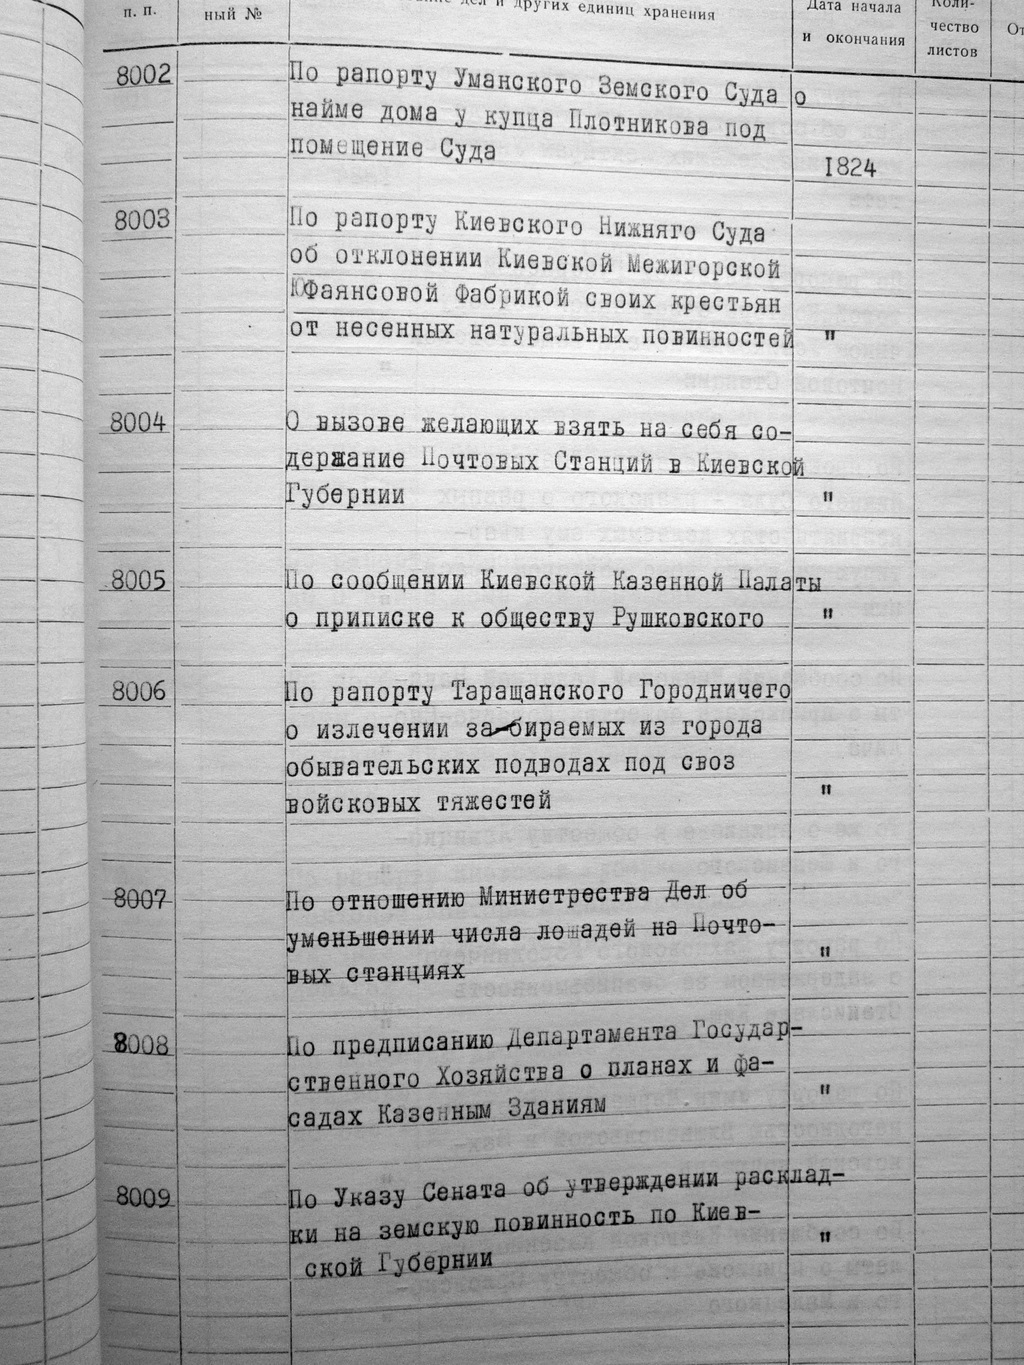 п. п.
ный №
дел и других единиц хранения
Дата начала
и окончания
Коли-
чество
листов
8002
По рапорту Уманского Земского Суда о
найме дома у купца Плотникова под
помещение Суда
1824
8003
По рапорту Киевского Нижняго Суда
об отклонении Киевской Межигорской
Фаянсовой Фабрикой своих крестьян
от несенных натуральных повинностей "
8004
О вызове желающих взять на себя со-
держание Почтовых Станций в Киевской
Губернии "
8005
По сообщении Киевской Казенной Палаты
о приписке к обществу Рушковского "
8006
По рапорту Таращанского Городничего
о излечении забираемых из города
обывательских подводах под своз
войсковых тяжестей "
8007
По отношению Министрества Дел об
уменьшении числа лошадей на Почто-
вых станциях "
8008
По предписанию Департамента Государ-
ственного Хозяйства о планах и фа-
садах Казенным Зданиям "
8009
По Указу Сената об утверждении расклад-
ки на земскую повинность по Киев-
ской Губернии "